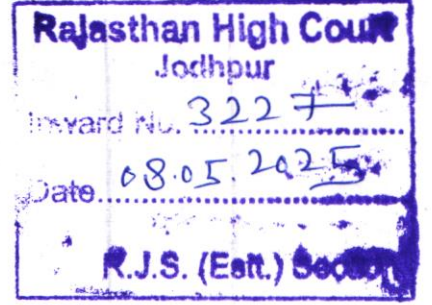 Rajasthan High Court
Jodhpur
Inward No. 3227
Date 08.05.2025
R.J.S. (Estt.) Section